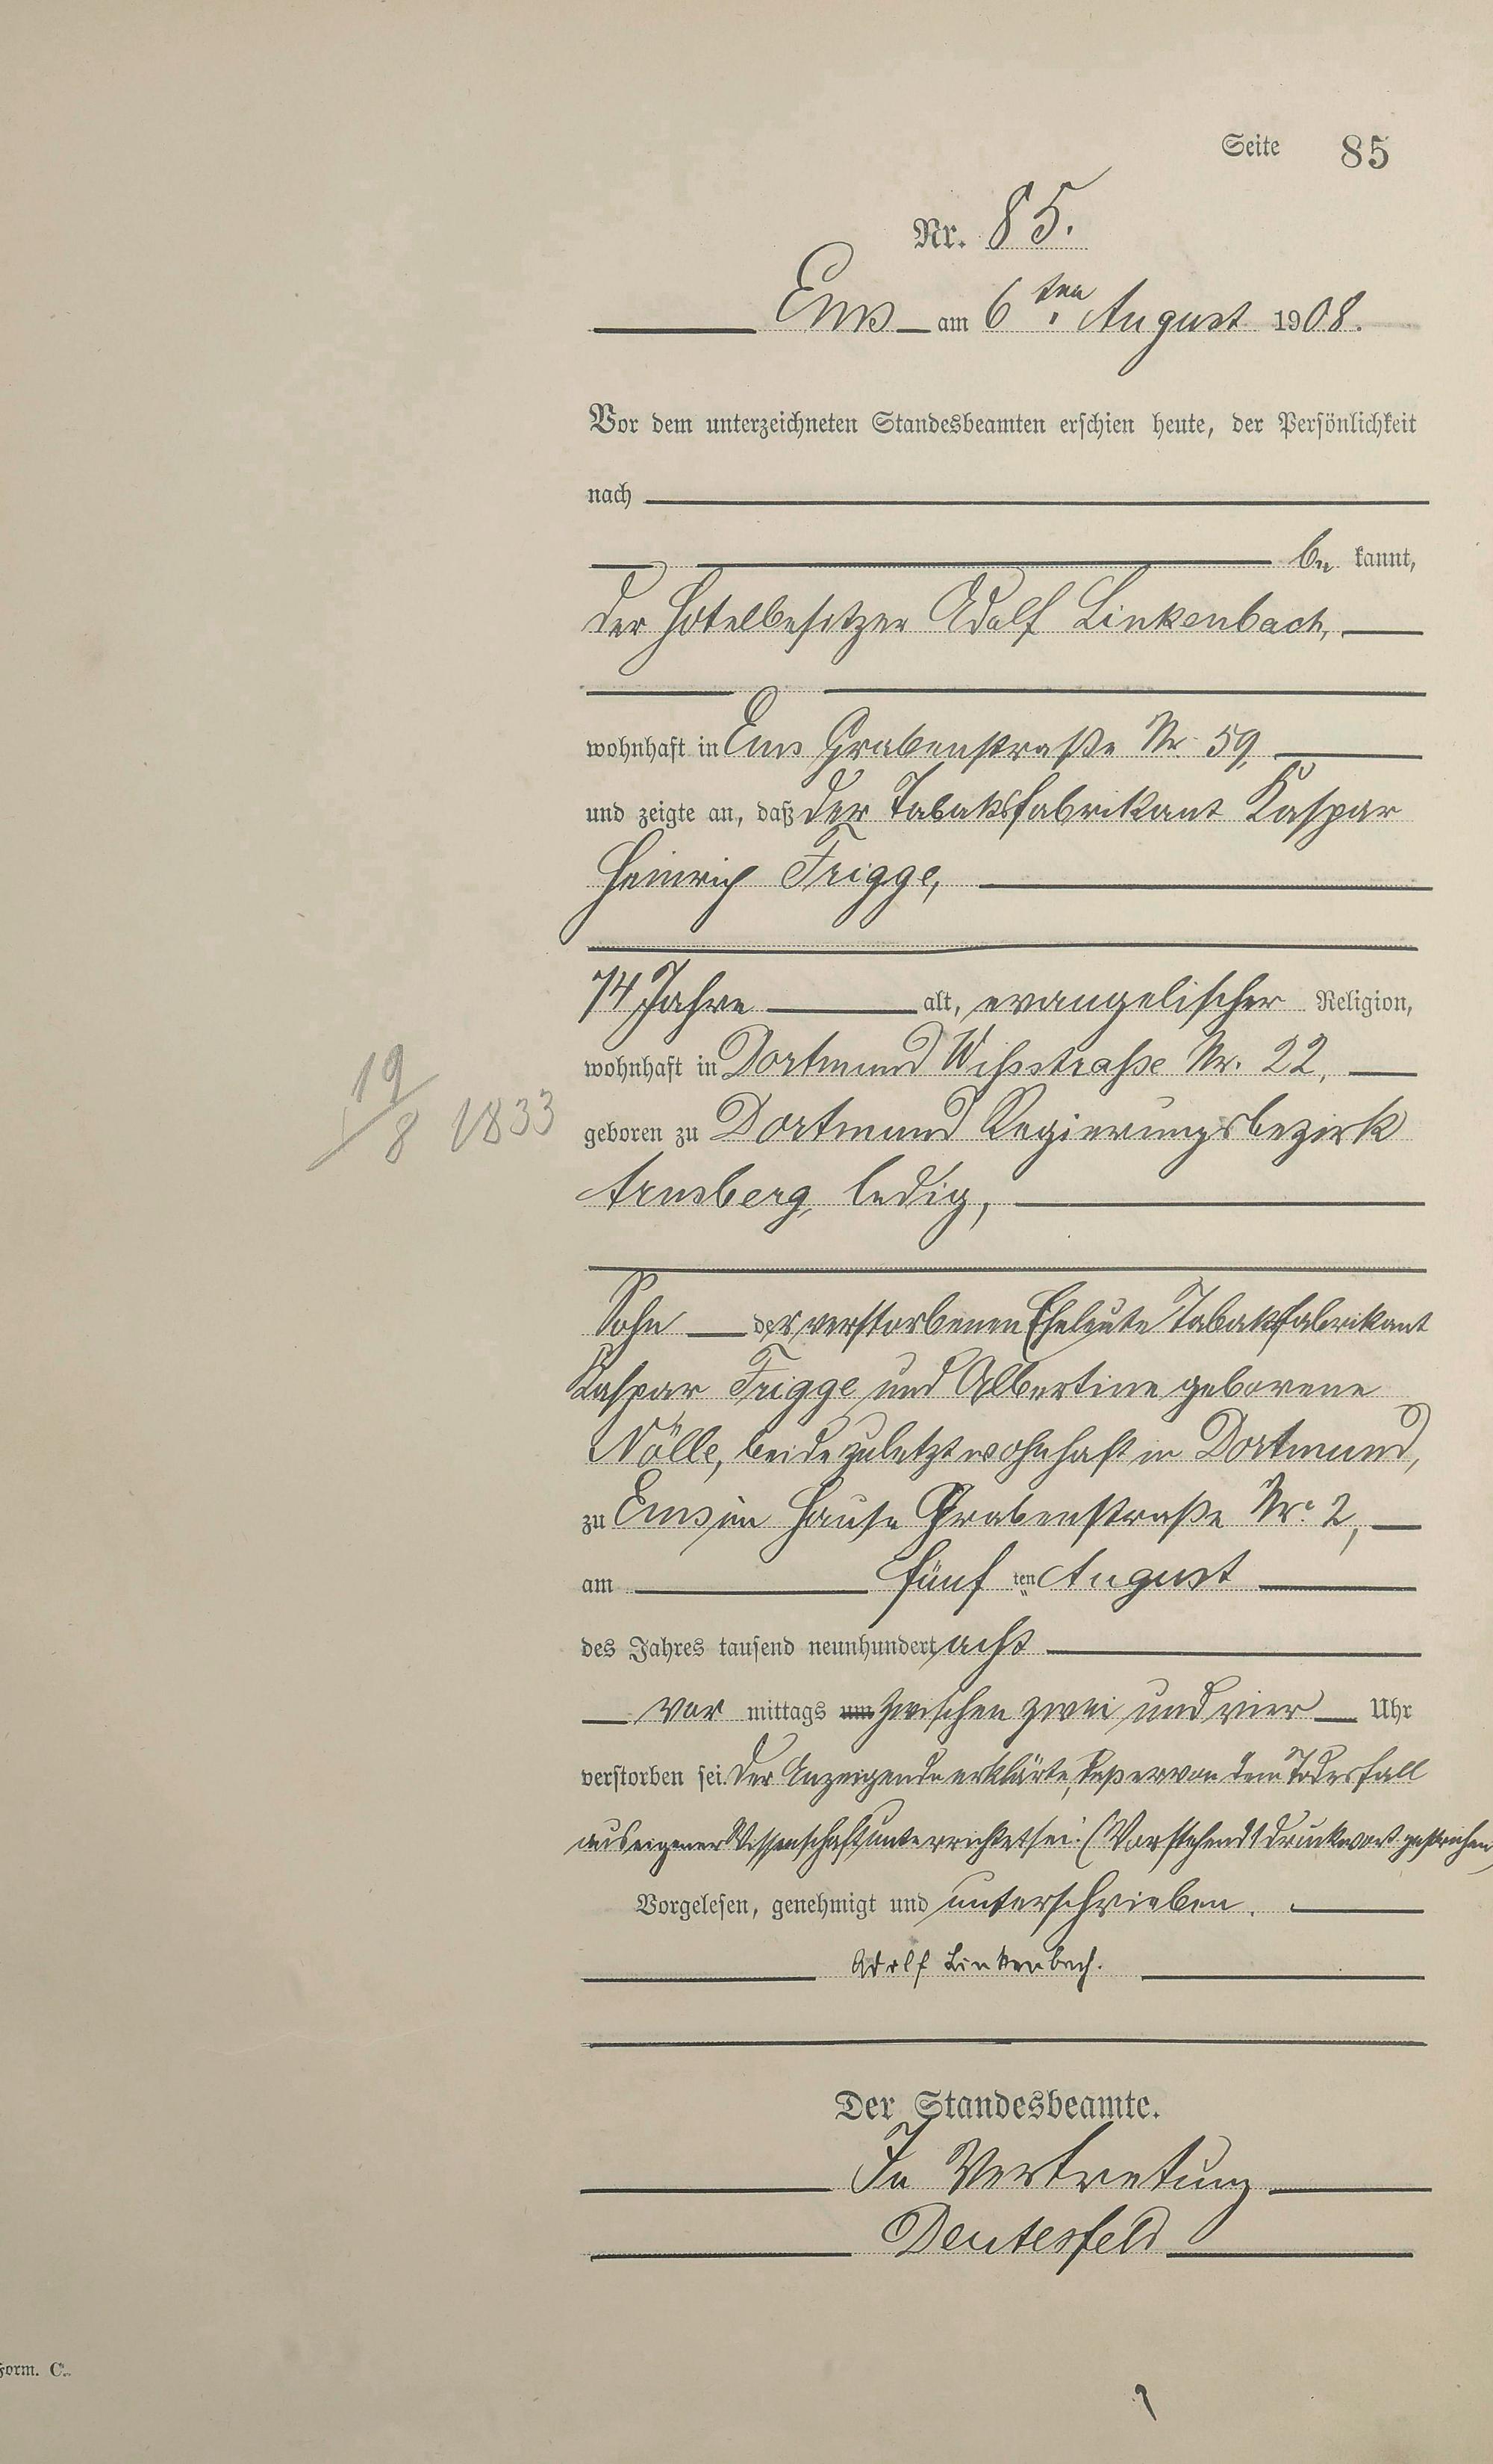 Seite 85
Nr. 85.
Ems am 6ten August 1908.
Vor dem unterzeichneten Standesbeamten erschien heute, der Persönlichkeit
nach
be kannt,
der Hotelbesitzer Adolf Linkenbach,
wohnhaft in Ems Grabenstraße Nr. 59,
und zeigte an, daß der Tabaksfabrikant Kaspar
Heinrich Frigge,
74 Jahre alt, evangelischer Religion,
wohnhaft in Dortmund Wißstraße Nr. 22,
19/8 1833
geboren zu Dortmund Regierungsbezirk
Arnsberg, ledig,
Sohn der verstorbenen Eheleute Tabaksfabrikant
Kaspar Frigge und Albertine geborene
Nölle, beide zuletzt wohnhaft in Dortmund,
zu Ems im Hause Grabenstraße Nr. 2,
am fünf ten August
des Jahres tausend neunhundert acht
vor mittags um zwischen zwei und vier Uhr
verstorben sei. Der Anzeigende erklärte, daß er von dem Todesfall
aus eigener Wissenschaft unterrichtet sei. (Vorstehend 1 Druckwort gestrichen)
Vorgelesen, genehmigt und unterschrieben.
Adolf Linkenbach.
Der Standesbeamte.
In Vertretung
Deutesfeld
Form. C.